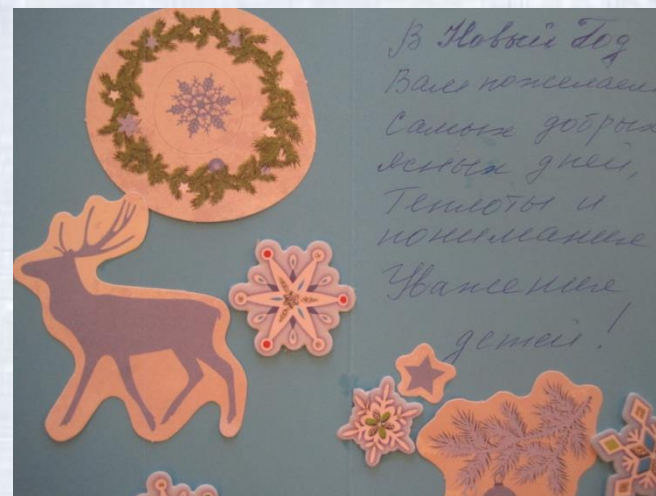 В Новый Год
Вам пожелаем
Самых добрых
ясных дней,
Теплоты и
понимания
Уважения
детей!